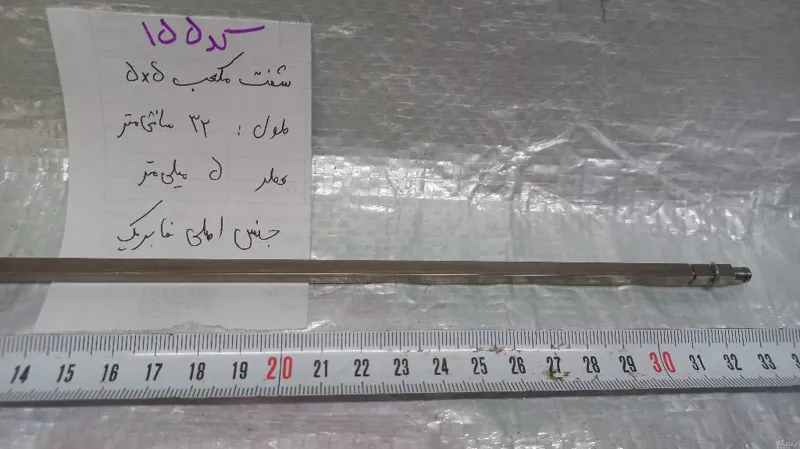 کد ۱۵۵
شفت مکعب ۵×۵
طول : ۳۲ سانتی‌متر
قطر ۵ میلی‌متر
جنس اصلی فابریک
14 15 16 17 18 19 20 21 22 23 24 25 26 27 28 29 30 31 32 33